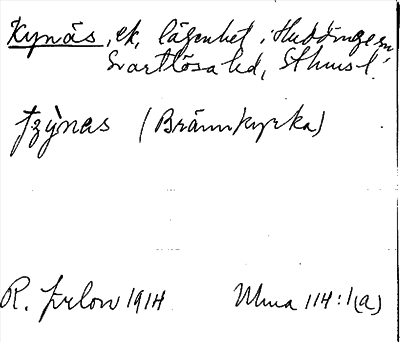 Kynäs, ek, lägenhet i Huddinge sn,
Svartlösa hd, Sthms l.
(Brännkyrka)
R. Jirlow 1914 Ulma 114:1(a)